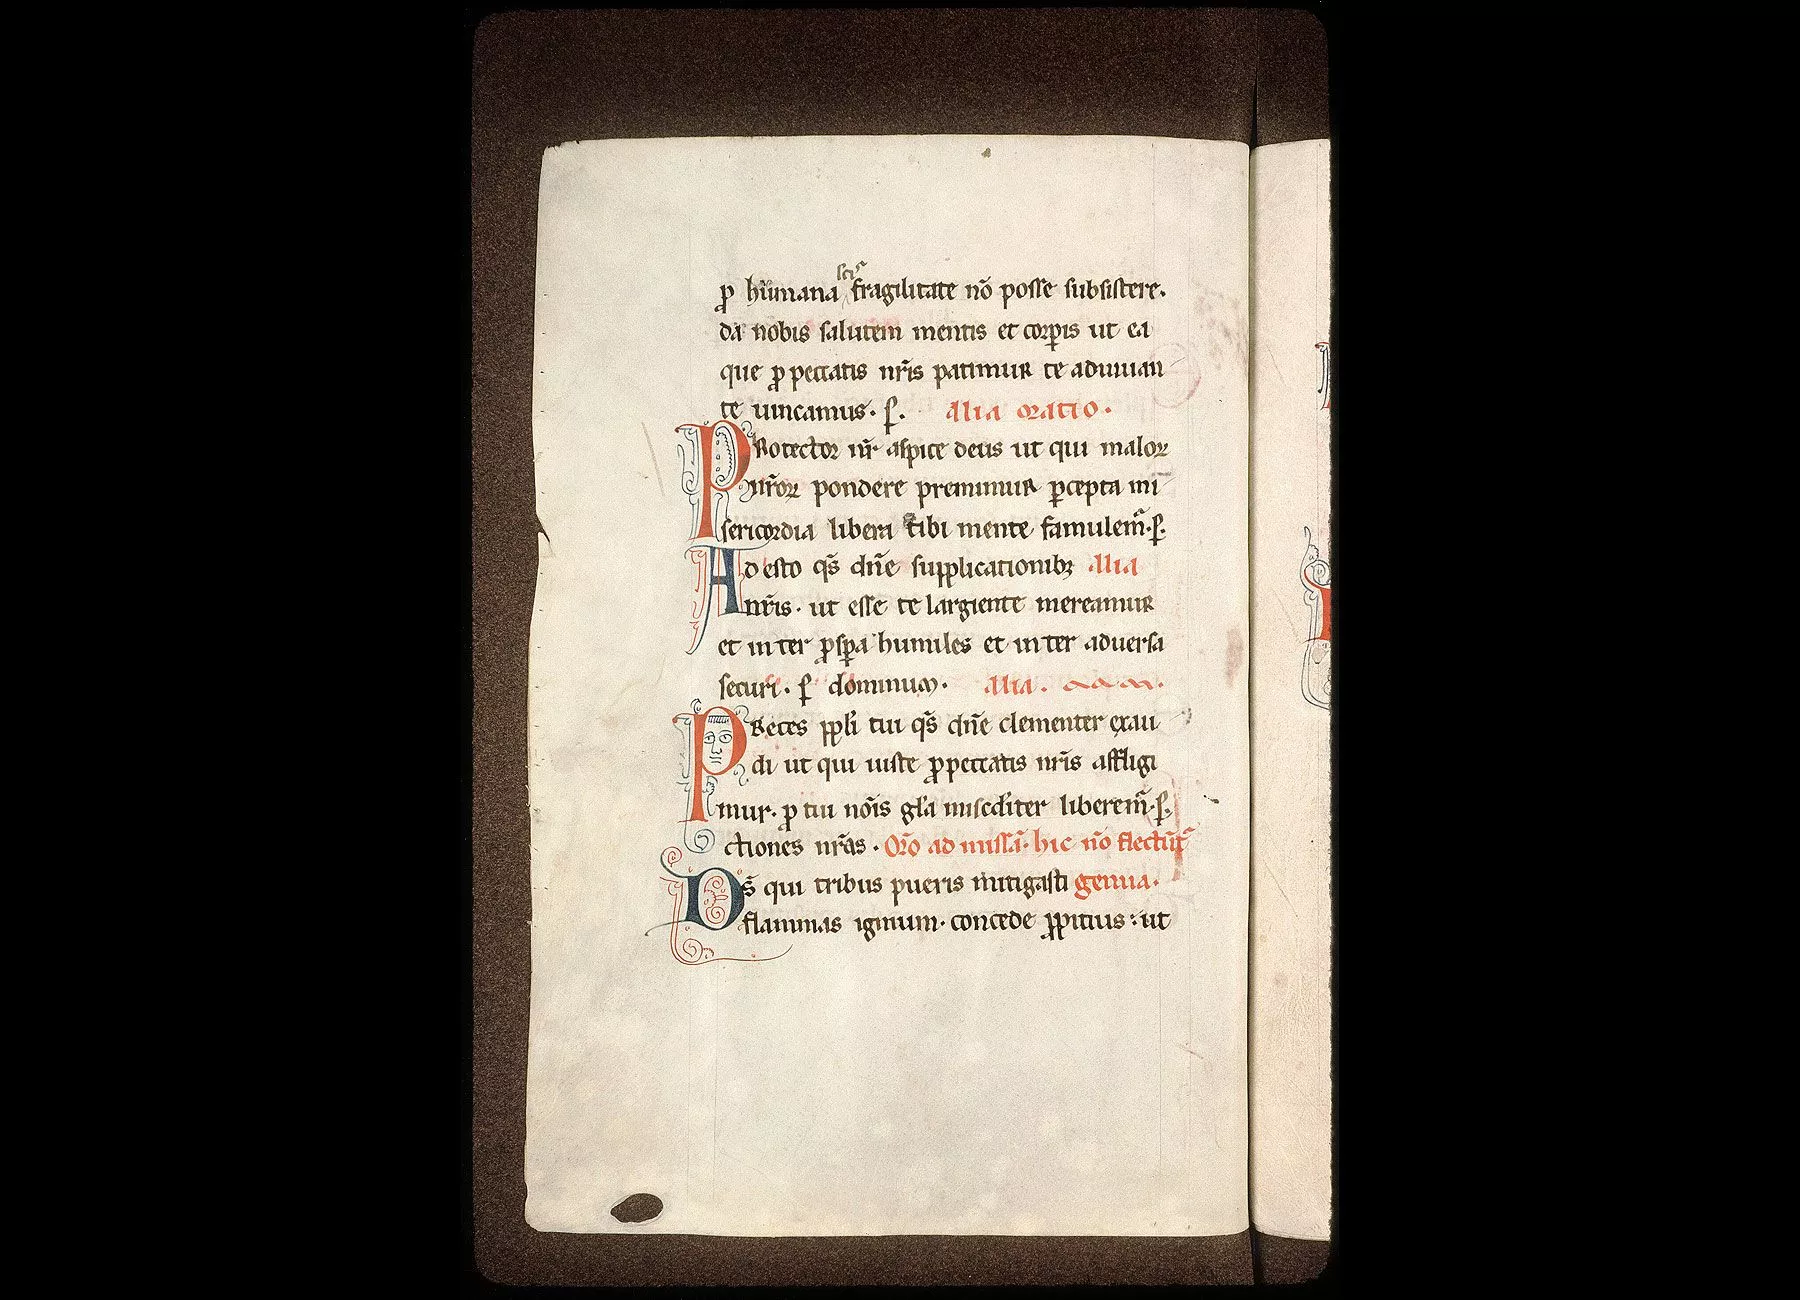 scis
ꝓ humana fragilitate nō posse subsistere.
da nobis salutem mentis et corꝑis ut ea
que ꝓ peccatis nr̄is patimur te adiuuan
te uincamus. ꝑ. Alia oratio.
Protector nr̄ aspice deus ut qui maloꝝ
nr̄oꝝ pondere premimur ꝑcepta mi
sericordia libera tibi mente famulem᷑. ꝑ.
Adesto qs̄ dn̄e supplicationibꝫ Alia
nr̄is. ut esse te largiente mereamur
et inter ꝓsꝑa humiles et inter aduersa
securi. ꝑ dominum. Alia.
Preces ppl̄i tui qs̄ dn̄e clementer exau
di ut qui iuste ꝓ peccatis nr̄is affligi
mur. ꝓ tui nōis gl̄a misc̄diter liberem᷑. ꝑ.
ctiones nr̄as. Or̄o ad missā. hic nō flectūt᷑
Ds̄ qui tribus pueris mitigasti genua.
flammas ignium. concede ꝓpitius: ut